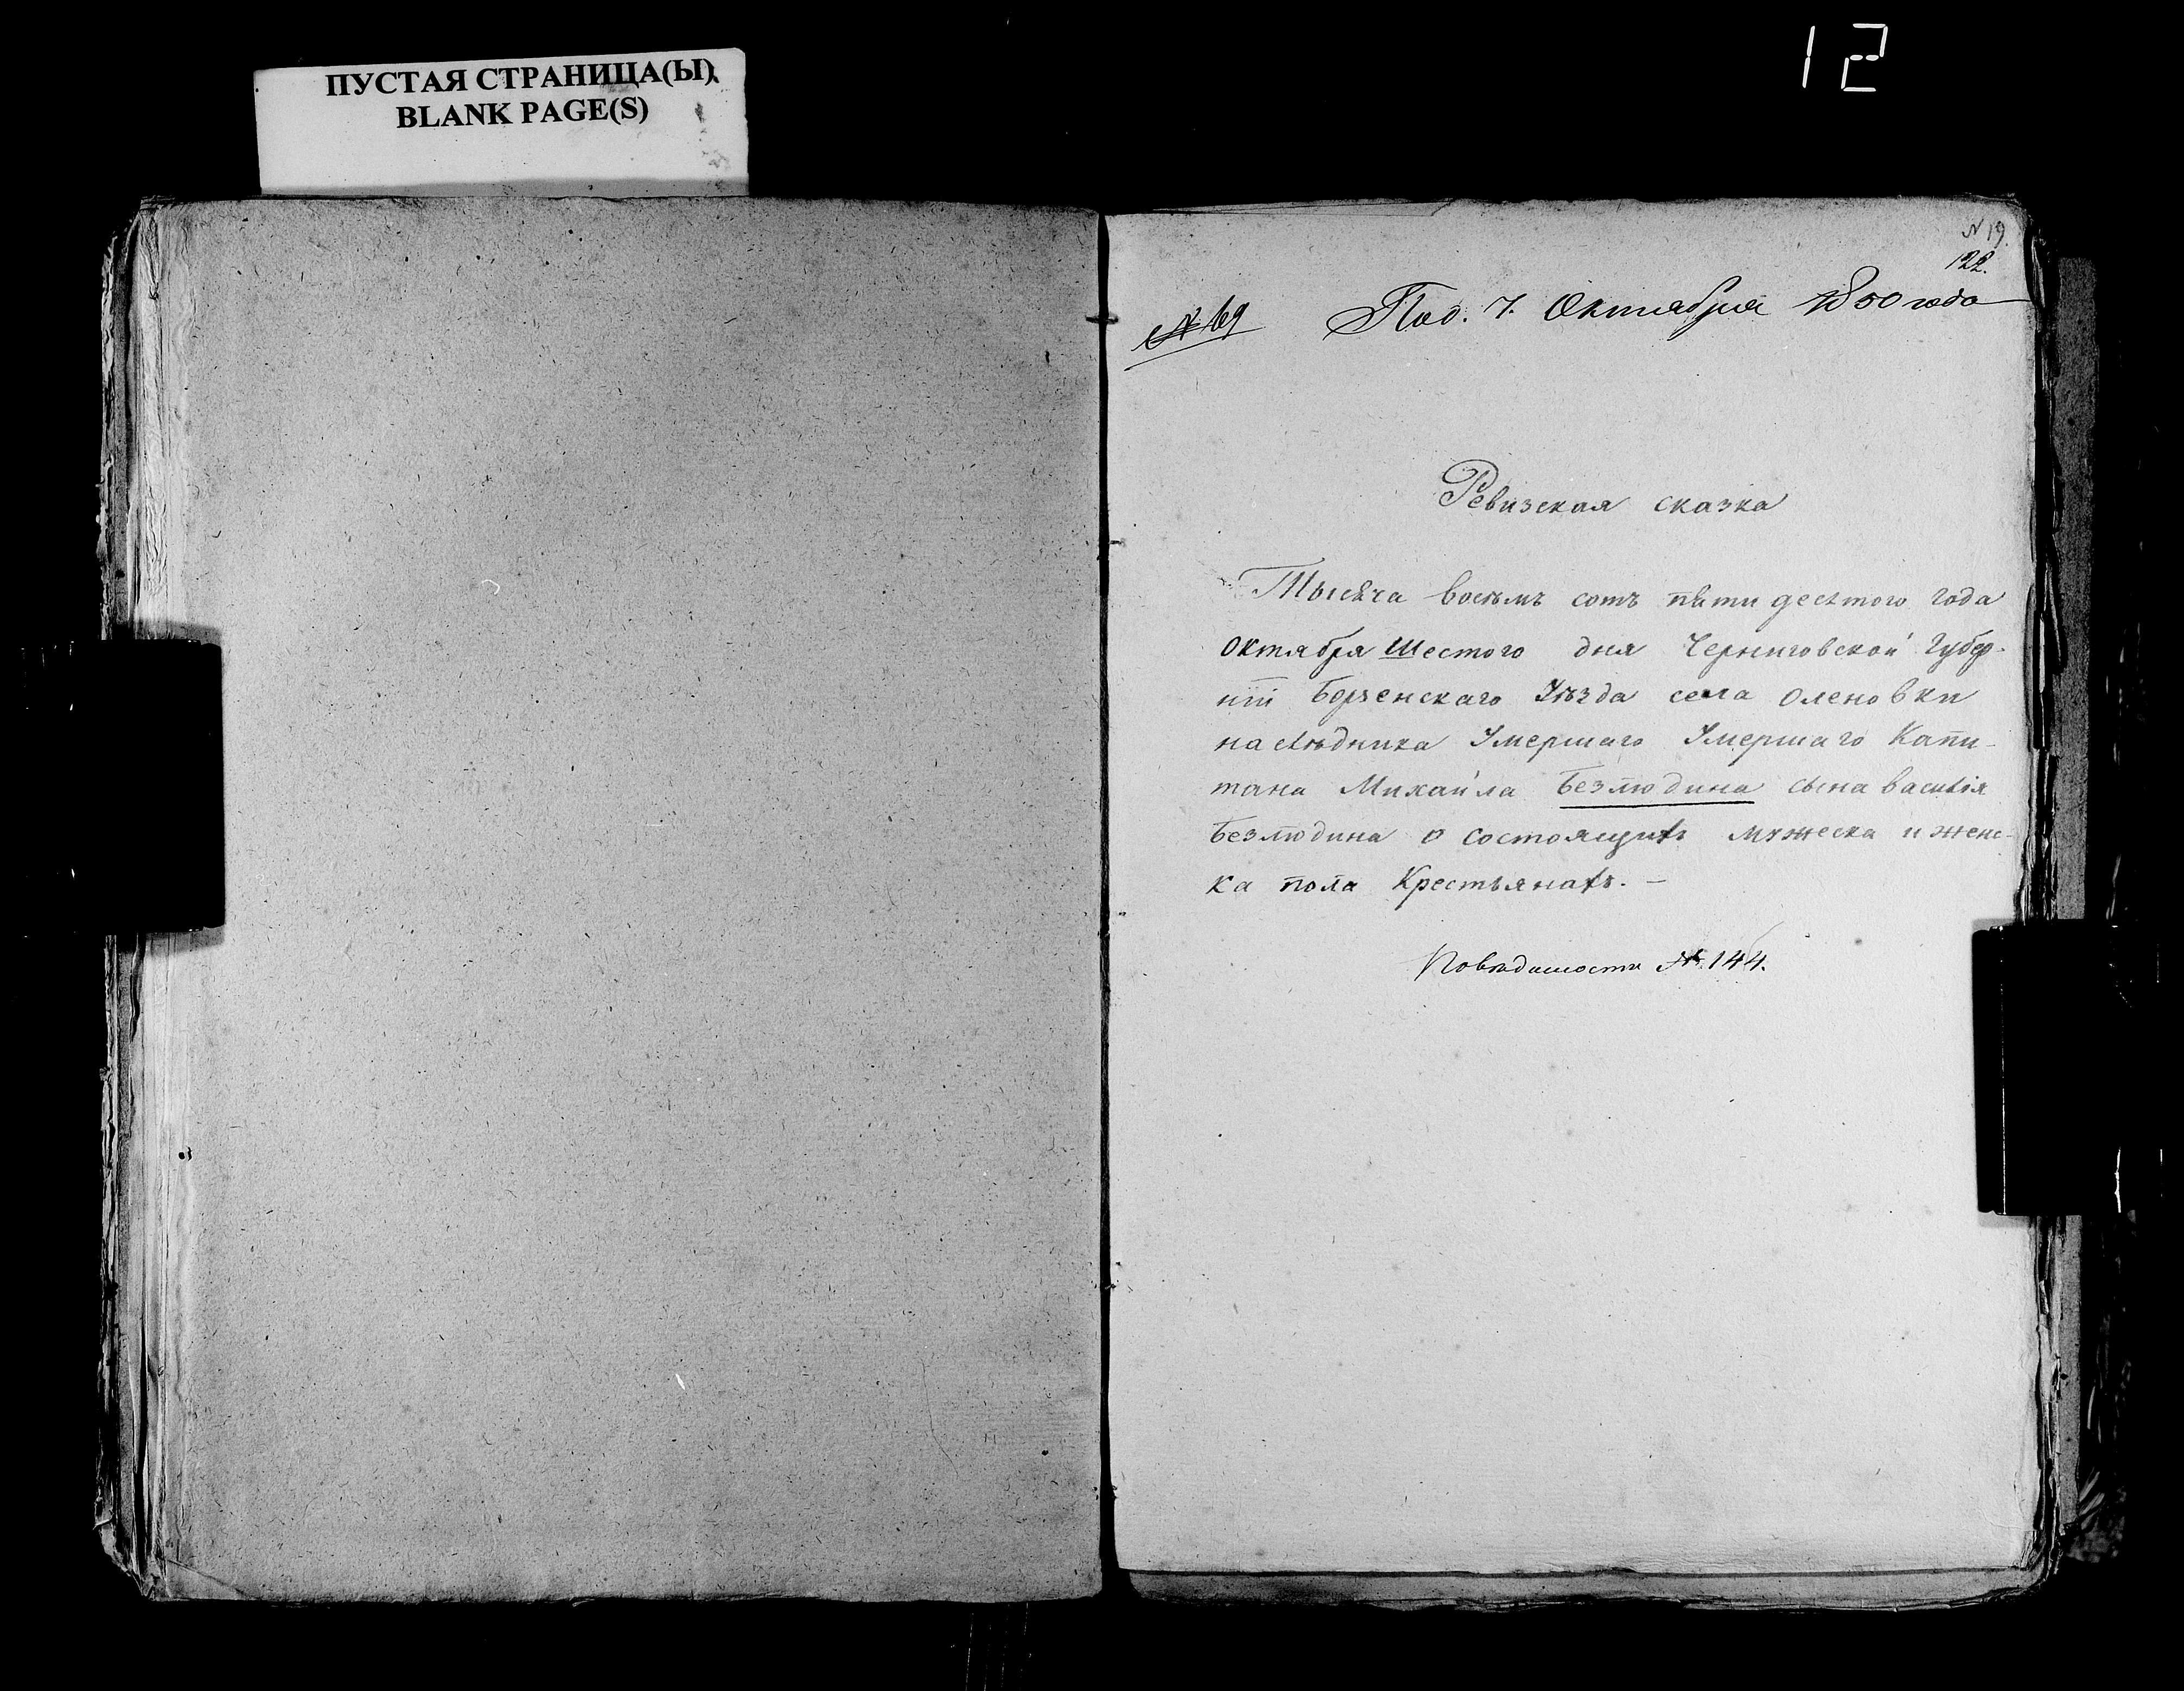 ПУСТАЯ СТРАНИЦА(Ы)
BLANK PAGE(S)
12
N 19.
122.
№ 69 Под. 7. Октября 1850 года
Ревизская сказка
Тысяча восемъ сотъ пяти десятого года
Октября Шестого дня Черниговской Губер-
нїи Борзенскаго Уѣзда села Оленовки
наслѣдника Умершаго Умершаго Капи-
тана Михайла Безлюдина сына василія
Безлюдина о состоящихъ мужеска и женс-
ка пола Крестьянахъ. —
№ 144.